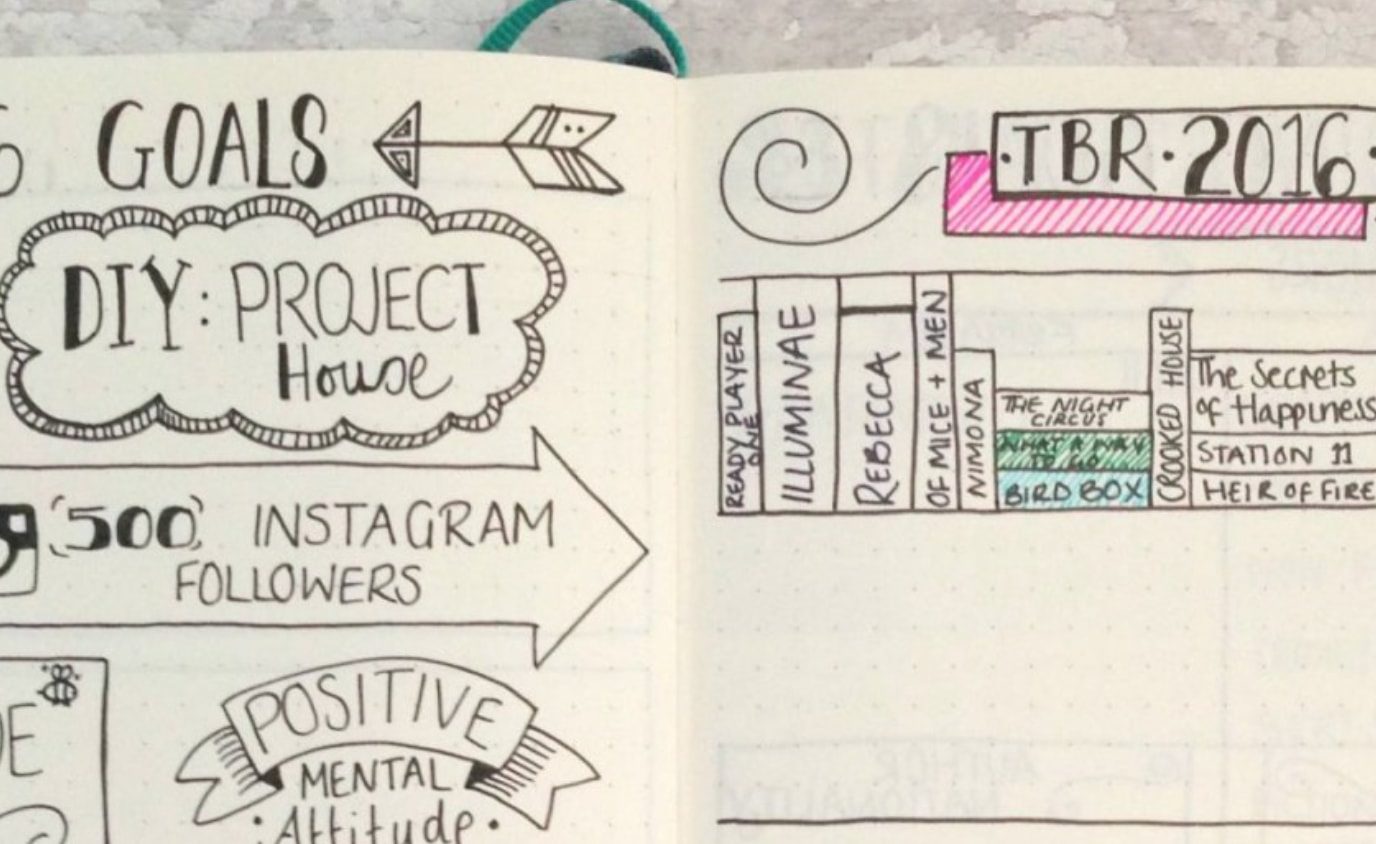 GOALS
DIY: PROJECT
House
500 INSTAGRAM
FOLLOWERS
POSITIVE
MENTAL
•Attitude•
•TBR•2016•
READY PLAYER
ONE
ILLUMINAE
REBECCA
OF MICE + MEN
NIMONA
THE NIGHT
CIRCUS
WHAT A WAY
TO GO
BIRD BOX
CROOKED HOUSE
The Secrets
of Happiness
STATION 11
HEIR OF FIRE